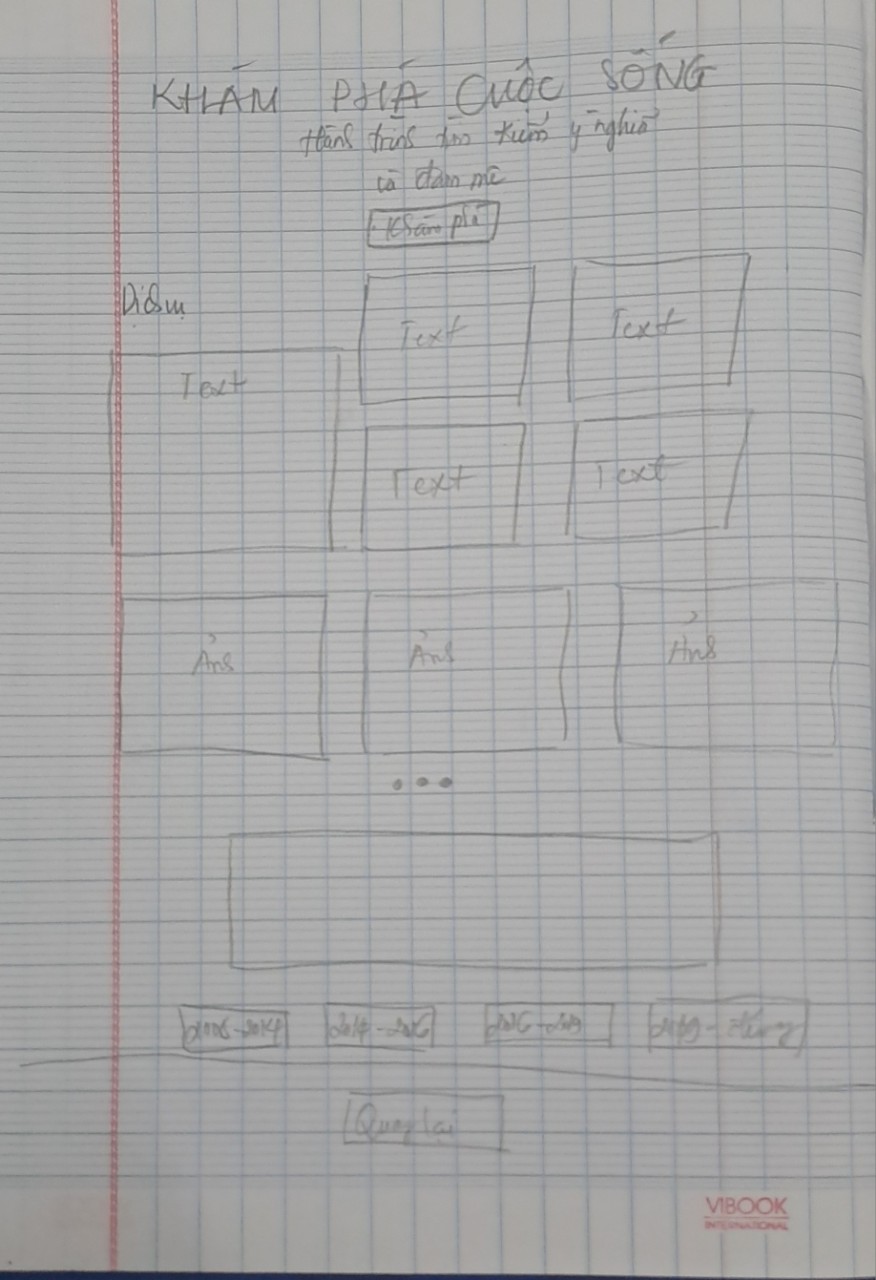 KHÁM PHÁ CUỘC SỐNG
Hành trình tìm kiếm ý nghĩa
và đam mê
Khám phá
Dịch vụ
Text
Text
Text
Text
Text
Ảnh
Ảnh
Ảnh
2006-2014
2014-2016
2016-2019
2019-
Quay lại
VIBOOK
INTERNATIONAL